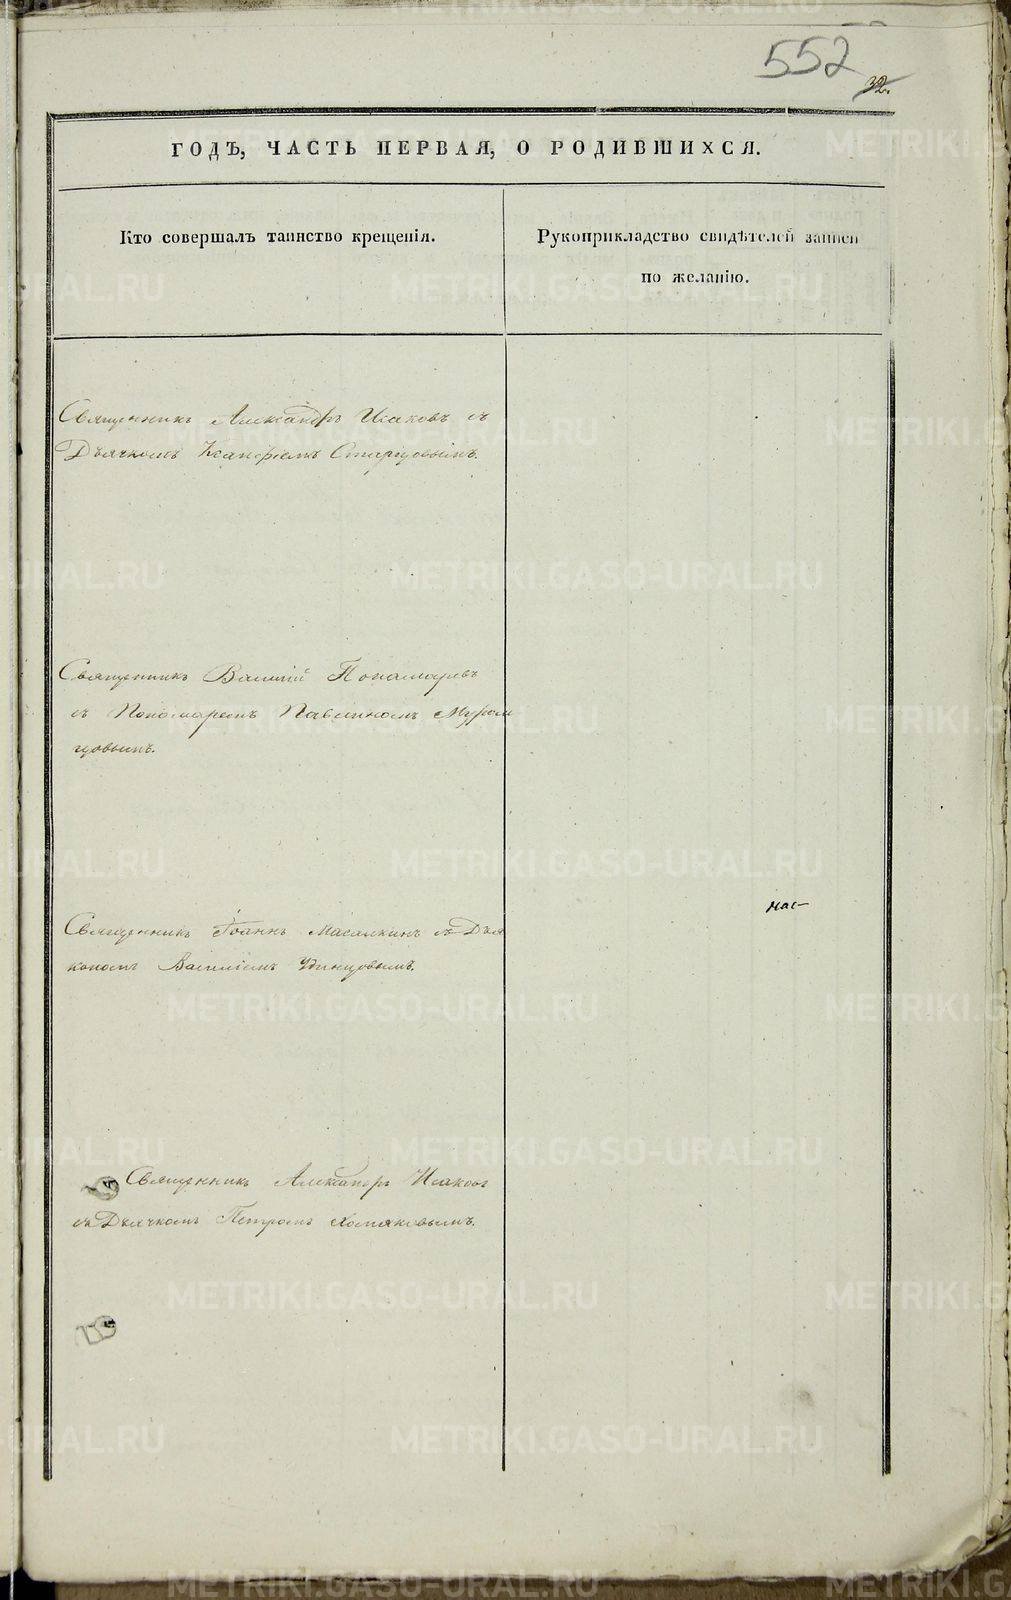 552
32.
ГОДЪ, ЧАСТЬ ПЕРВАЯ, О РОДИВШИХСЯ.
Кто совершалъ таинство крещенія.
Рукоприкладство свидѣтелей записи
по желанію.
Священникъ Александръ Исаковъ съ
Дьячкомъ Ксанфіемъ Старцовымъ.
Священникъ Василій Пономаревъ
съ Пономаремъ Павлиномъ Муром
цовымъ.
Священникъ Іоаннъ Масалкинъ съ Діа
кономъ Василіемъ Удинцовымъ.
нас-
Священникъ Александръ Исаковъ
съ Дьячкомъ Петромъ Хомяковымъ.
METRIKI.GASO-URAL.RU